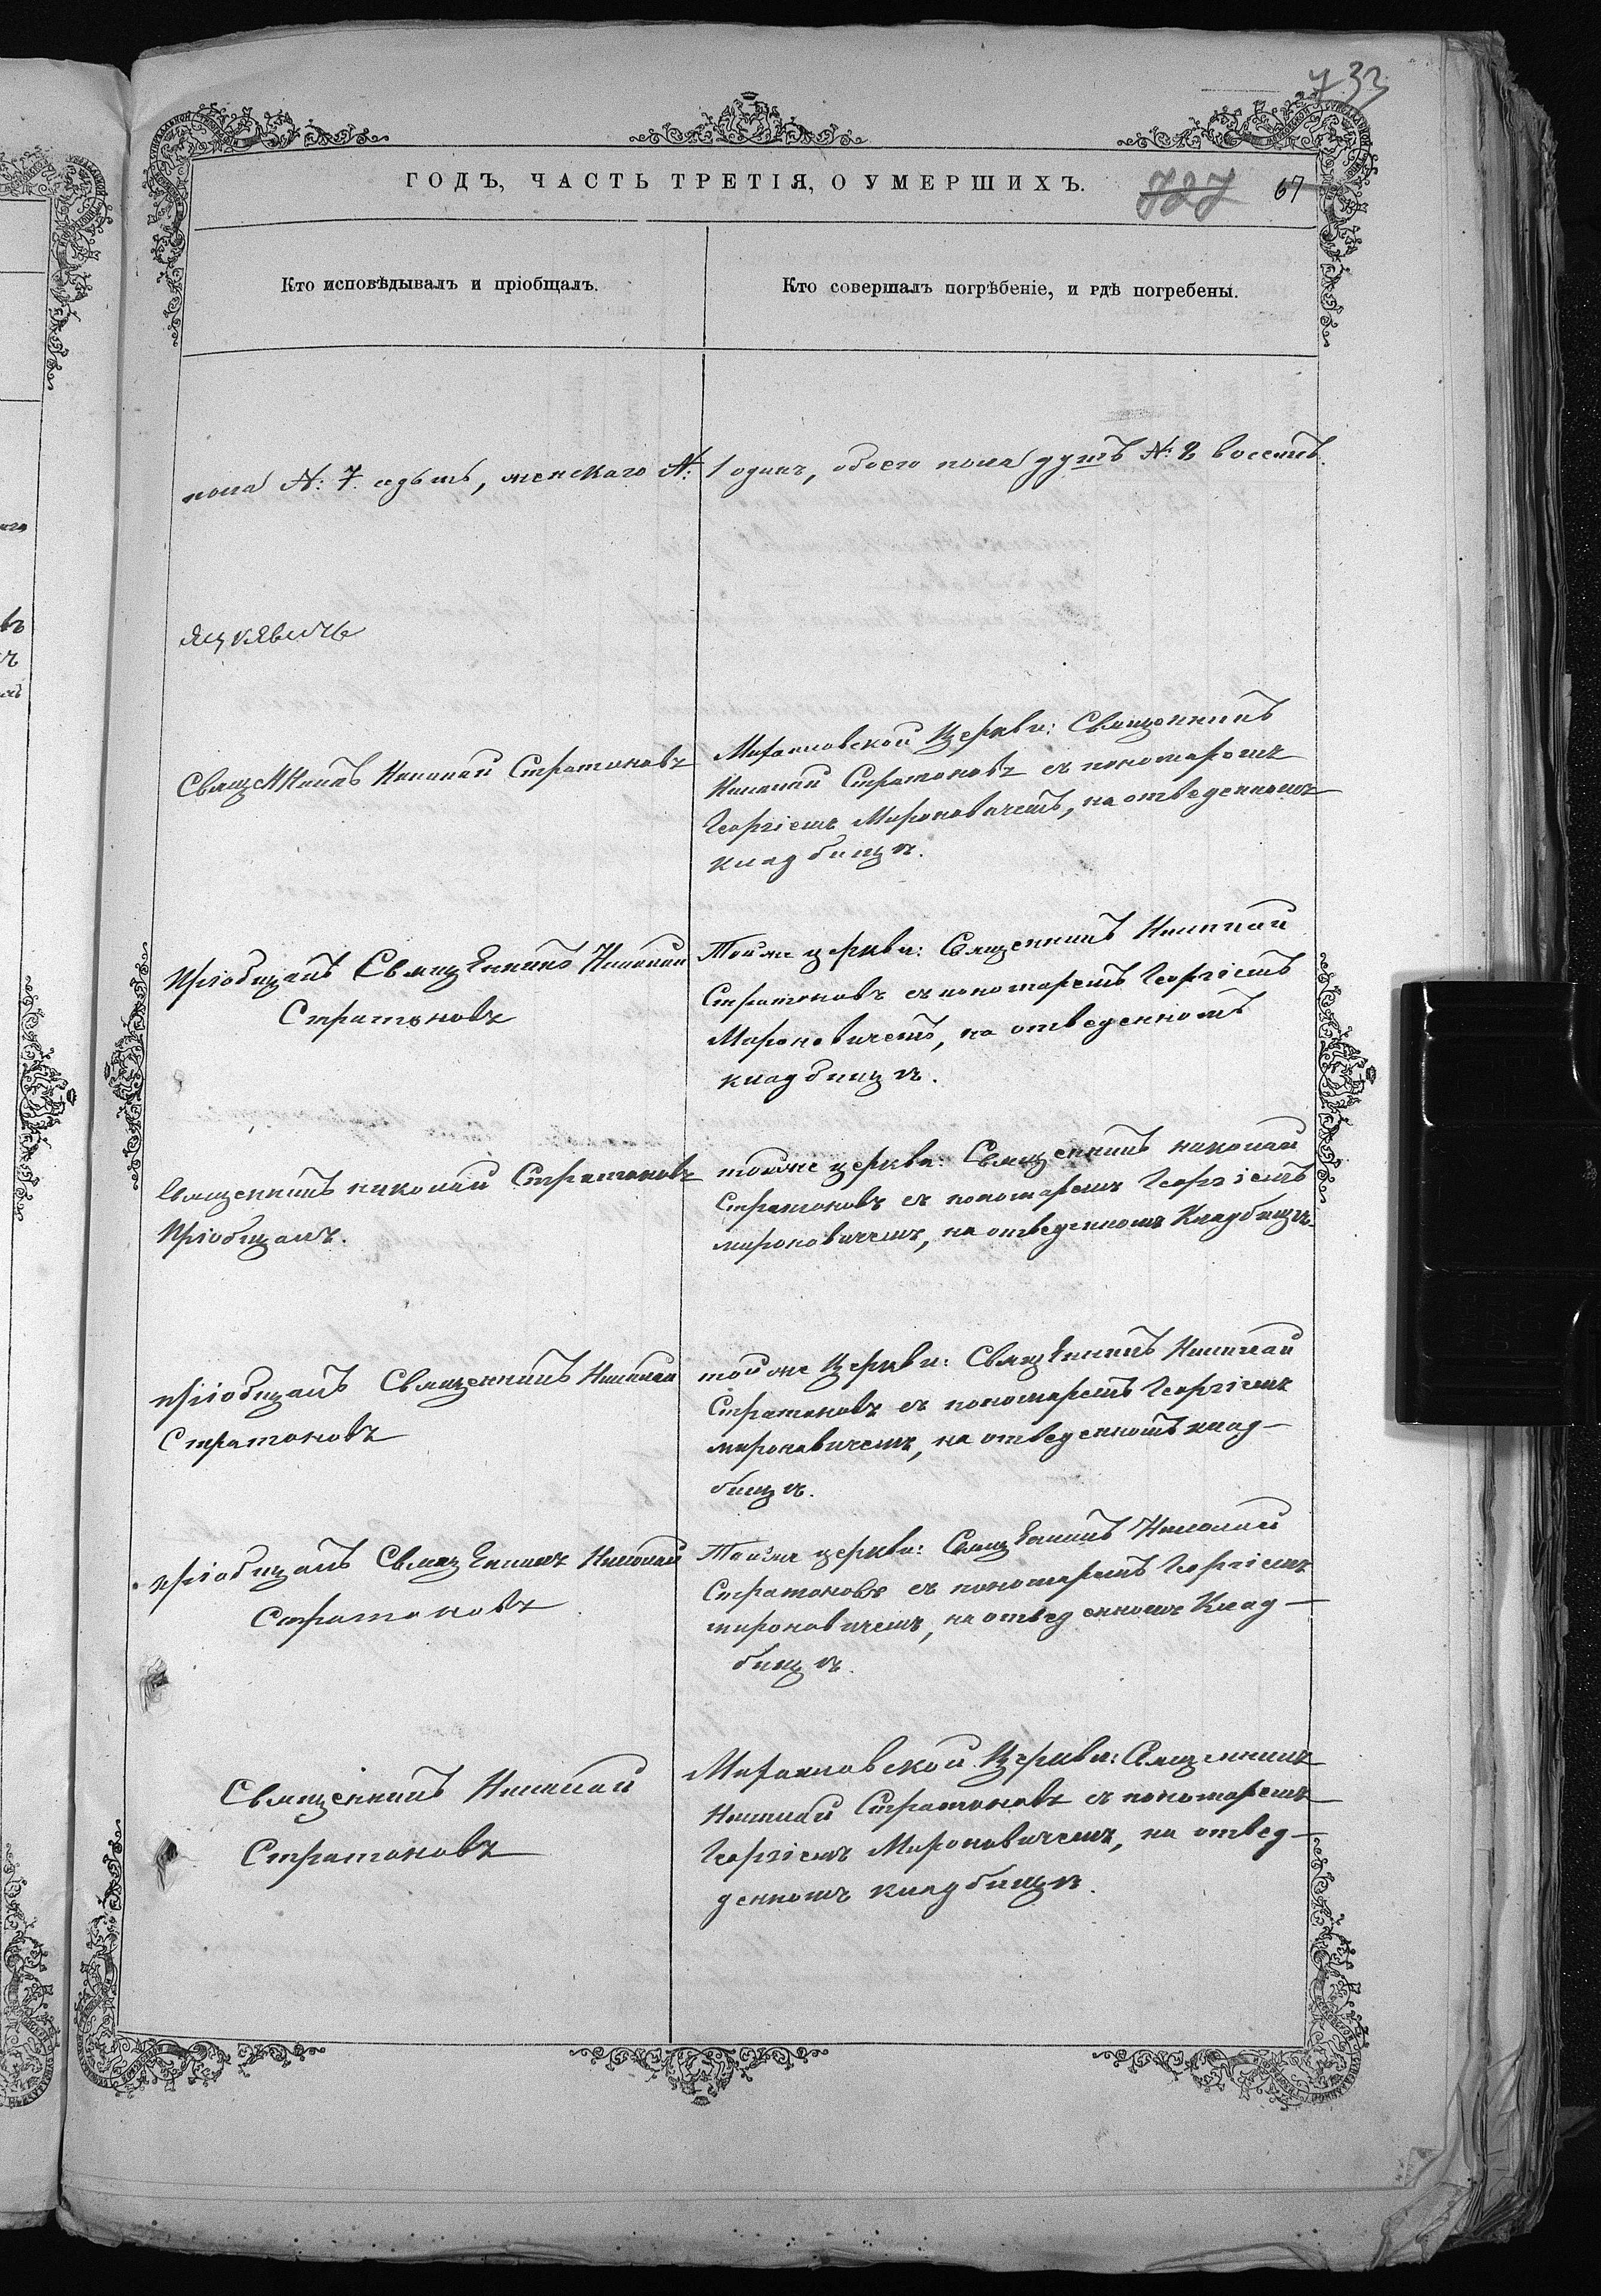 733
ГОДЪ, ЧАСТЬ ТРЕТІЯ, О УМЕРШИХЪ.
727 67
Кто исповѣдывалъ и пріобщалъ.
Кто совершалъ погрѣбеніе, и гдѣ погребены.
пола №: 7. седьмъ, женскаго №: 1 одинъ, обоего пола душъ №: 8 восемъ.
Священникъ Николай Стратоновъ
церкви: Священникъ
Николай Стратоновъ съ пономаромъ
Георгіемъ Мироновичемъ, на отведенномъ
кладбищѣ.
Пріобщалъ Священникъ Николай
Стратоновъ
Тойже церкви: Священникъ Николай
Стратоновъ съ пономаремъ Георгіемъ
Мироновичемъ, на отведенномъ
кладбищѣ.
Священникъ николай Стратоновъ
Пріобщалъ.
тойже церкви: Священникъ николай
Стратоновъ съ пономаремъ Георгіемъ
мироновичемъ, на отведенномъ Кладбищѣ
пріобщалъ Священникъ Николай
Стратоновъ
тойже Церкви: Священникъ Николай
Стратоновъ съ пономаремъ Георгіемъ
мироновичемъ, на отведенномъ клад-
бищѣ.
пріобщалъ Священникъ Николай
Стратоновъ
Тойже церкви: Священникъ Николай
Стратоновъ съ пономаремъ Георгіемъ
мироновичемъ, на отведенномъ Клад-
бищѣ.
Священникъ Николай
Стратоновъ
Церкви: Священникъ
Николай Стратоновъ съ пономаремъ
Георгіемъ Мироновичемъ, на отвед-
денномъ кладбищѣ.